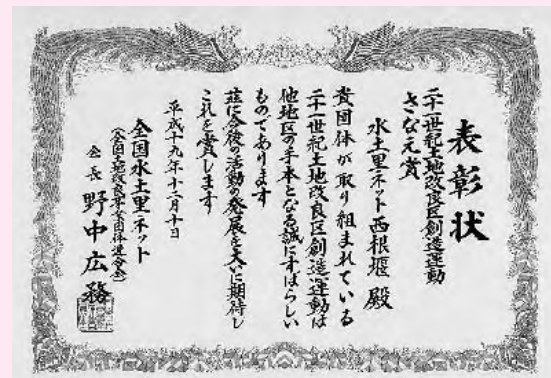 表彰状
二十一世紀土地改良区創造運動
さなえ賞
水土里ネット西根堰 殿
貴団体が取り組まれている
二十一世紀土地改良区創造運動は
他地区の手本となる誠にすばらしい
ものであります
茲に今後の活動の発展を大いに期待し
これを賞します
平成十九年十二月十日
全国水土里ネット
(全国土地改良事業団体連合会)
会長 野中広務